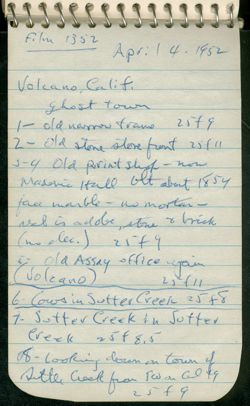 Film 1352
April 4 - 1952
Volcano, Calif.
Ghost town
1 - old narrow trans 25 f 9
2 - old stone store front 25 f 11
3-4 Old print shop - now
Masonic Hall blt about 1854
face marble - no mortar -
rest is adobe, stone & brick
(no elec.) 25 f 9
5 - Old Assay office again
(Volcano) 25 f 11
6 - Cows in Sutter Creek 25 f 8
7 - Sutter Creek in Sutter
Creek 25 f 8.5
8 - Looking down on town of
Sutter Creek from SW on Cal 49
25 f 9